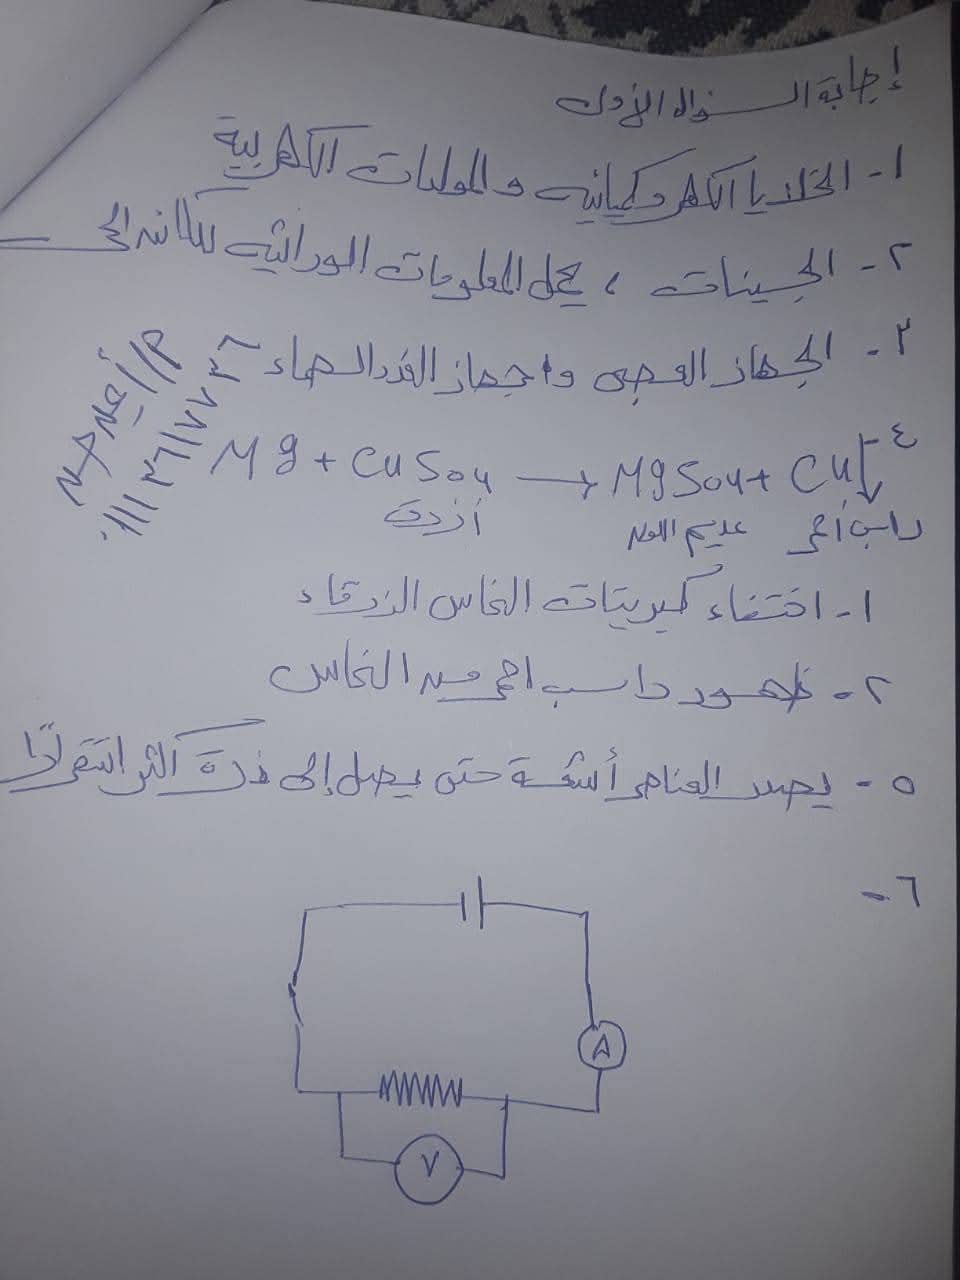 إجابة السؤال الأول
١- الخلايا الكهروكيميائيه والمولدات الكهربية
٢- الجينات ، يحمل المعلومات الوراثيه للكائن الحى
٣- الجهاز العصبى وجهاز الغدد الصماء
م/أيمن
٤- Mg + CuSo4 → MgSo4 + Cu ↓
أزرق عديم اللون راسب أحمر
١- اختفاء كبريتات النحاس الزرقاء
٢- ظهور راسب احمر من النحاس
٥- يصدر العناصر أشعة حتى يصل إلى ذرة أكثر استقرارًا
٦-
A
V